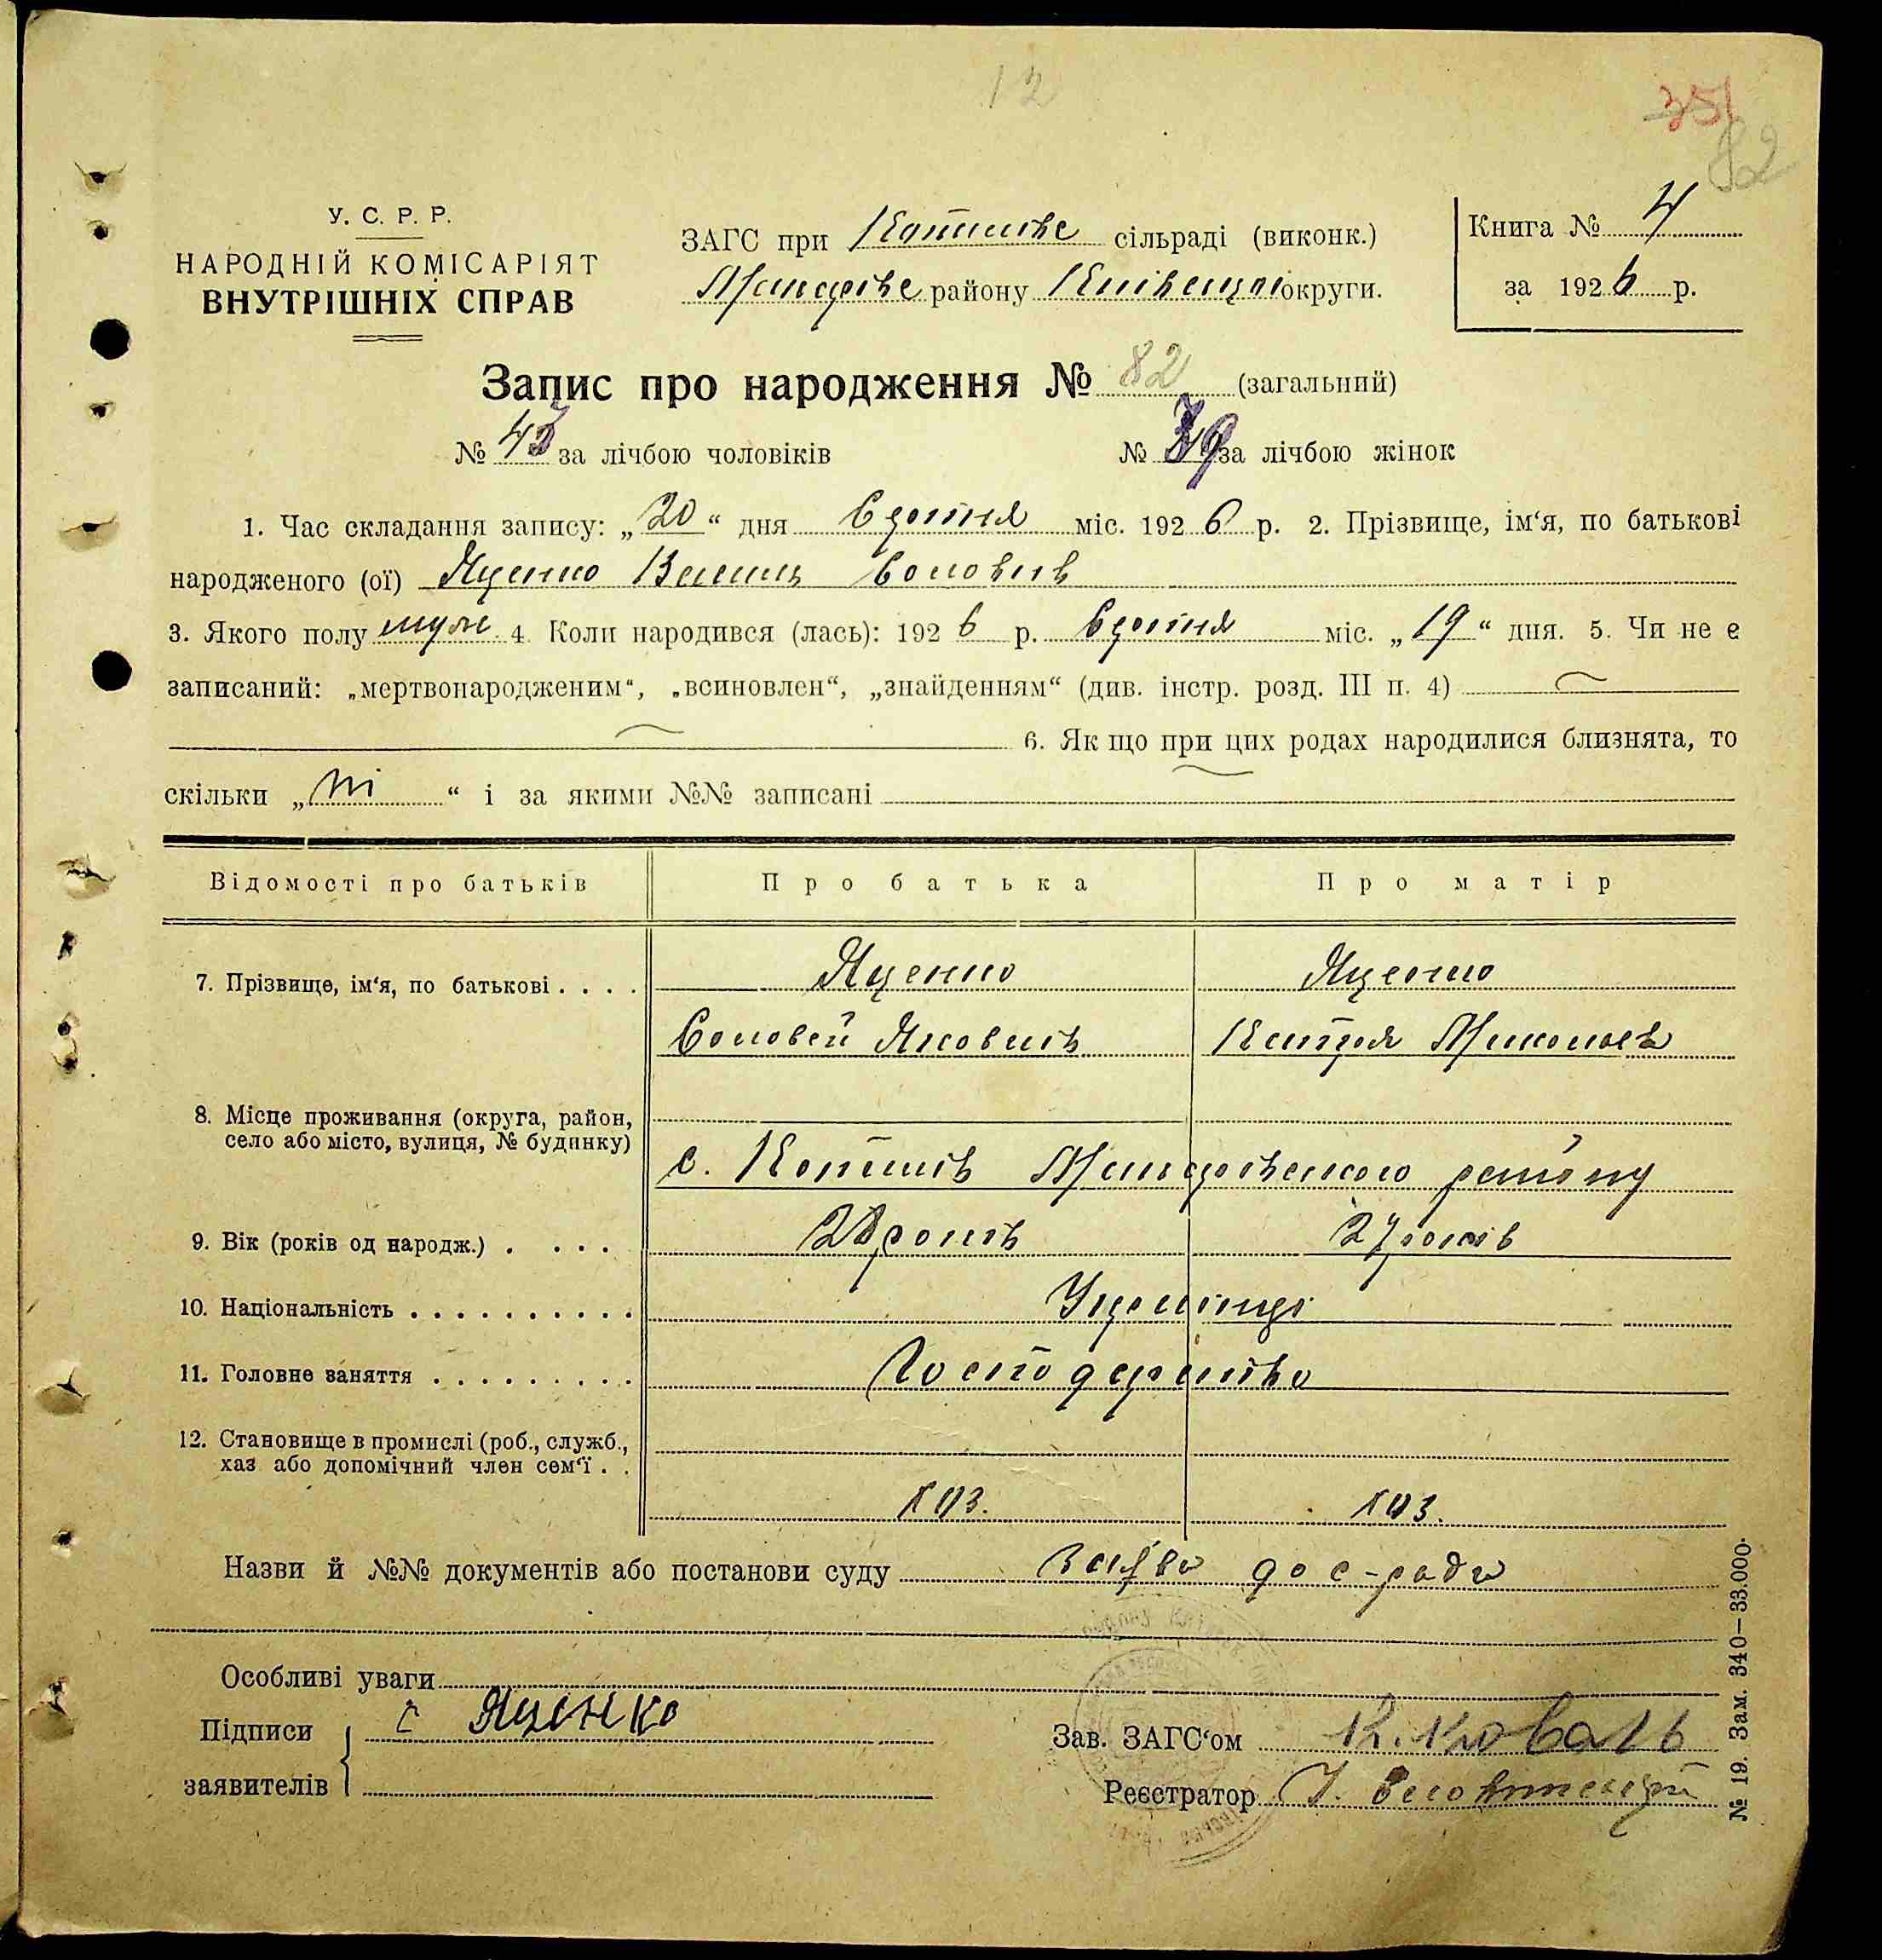 12
351
82
У. С. Р. Р.
НАРОДНІЙ КОМІСАРІЯТ
ВНУТРІШНІХ СПРАВ
ЗАГС при сільраді (виконк.)
району округи.
Книга № 4
за 1926 р.
Запис про народження № 82 (загальний)
№ 43 за лічбою чоловіків № 39 за лічбою жінок
1. Час складання запису: „20“ дня Серпня міс. 1926 р. 2. Прізвище, ім‘я, по батькові
народженого (ої) Яценко Василь
3. Якого полу муж. 4. Коли народився (лась): 1926 р. Серпня міс. „19“ дня. 5. Чи не є
записаний: „мертвонародженим“, „всиновлен“, „знайденням“ (див. інстр. розд. III п. 4)
6. Як що при цих родах народилися близнята, то
скільки „ні“ і за якими №№ записані
Відомості про батьків Про батька Про матір
7. Прізвище, ім‘я, по батькові . . . . Яценко Яценко
Соловей Яковлів Катря
8. Місце проживання (округа, район,
село або місто, вулиця, № будинку)
с. району
9. Вік (років од народж.) . . . . 28 років 27 років
10. Національність . . . . . . . . . . Українці
11. Головне заняття . . . . . . . . . Господарство
12. Становище в промислі (роб., служб.,
хаз або допомічний член сем‘ї . .
хаз. хаз.
Назви й №№ документів або постанови суду заява до с-ради
Особливі уваги
Підписи С Яценко
заявителів
Зав. ЗАГС‘ом К. Коваль
Реєстратор
№ 19. Зам. 340–33.000.